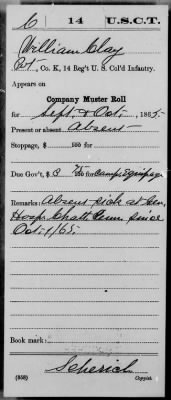 C 14 U.S.C.T.
William Clay
Pvt, Co. K, 14 Reg't U. S. Col'd Infantry.
Appears on
Company Muster Roll
for Sept. & Oct., 1865.
Present or absent Absent
Stoppage, $ 100 for
Due Gov't, $ 100 for Camp & Equipage
Remarks: Absent sick at Gen.
Hosp. Chatt. Tenn. since
Oct. 1/65.
Book mark:
Scherich
(358) Copyist.